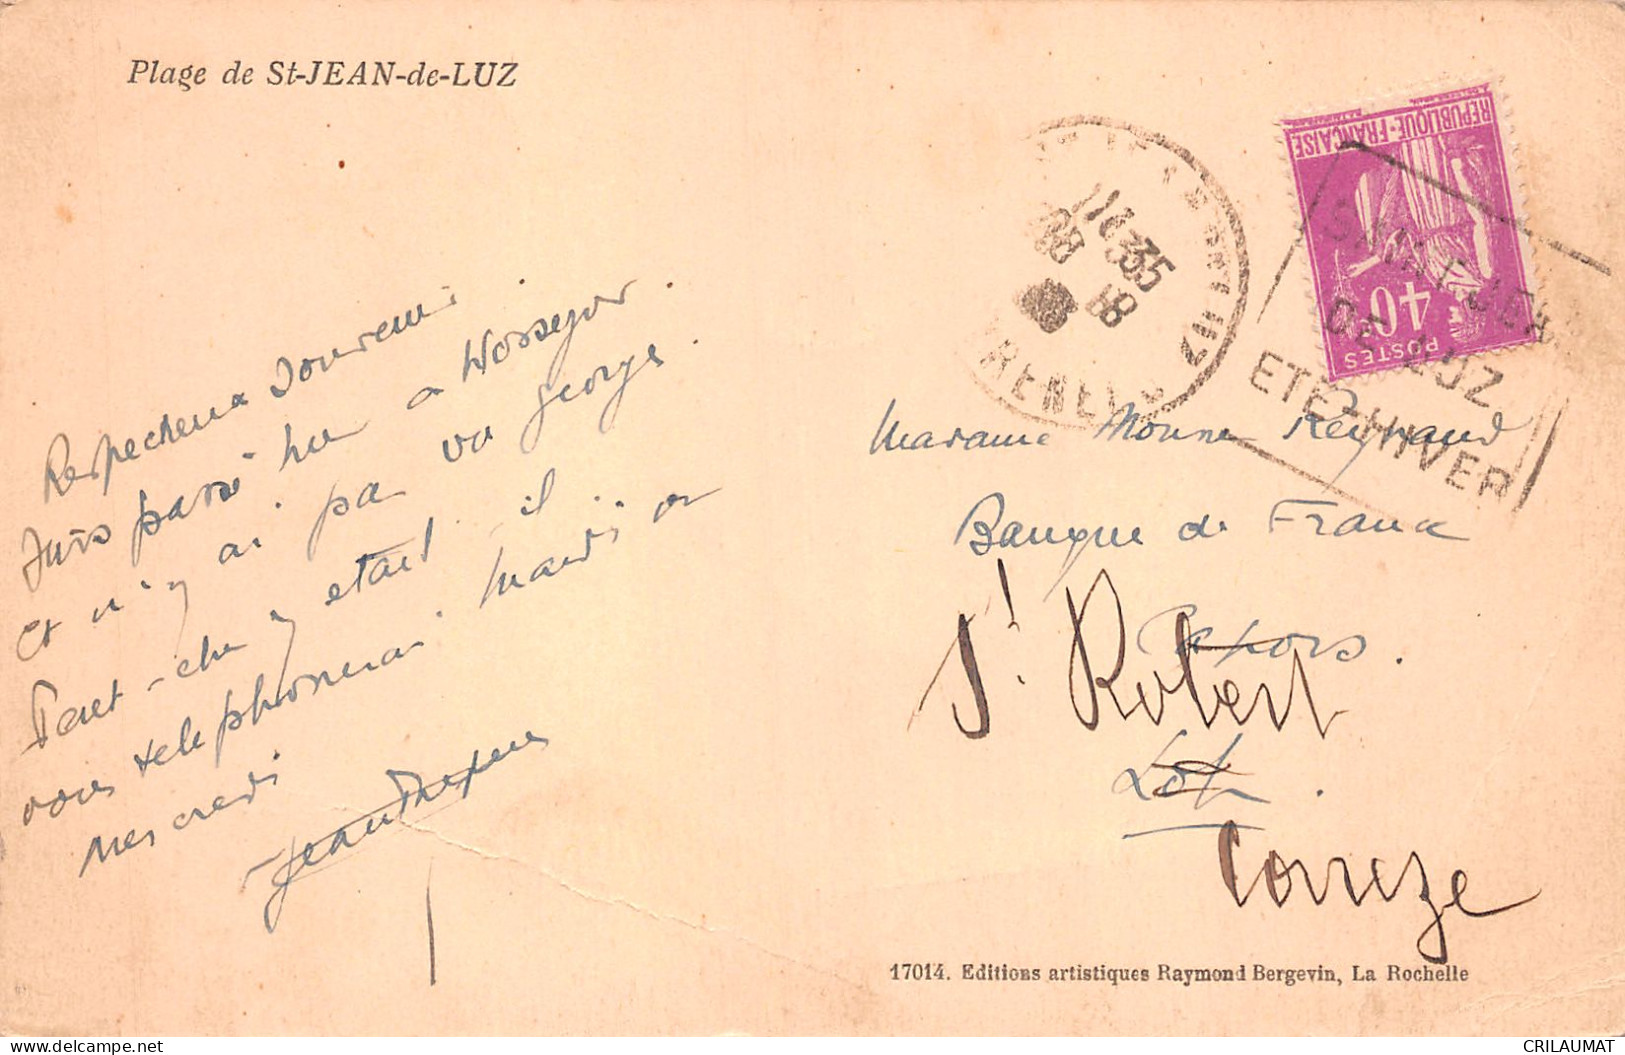 Plage de St-JEAN-de-LUZ
Respectueux Souvenir
Suis passé hier a Hossegor.
et n'y ai pas vu George.
Peut-etre y etait-il
vous telephonerai Mardi ou
Mercredi
Jean
REPUBLIQUE-FRANÇAISE
POSTES
40
11 35
18 8
SAINT-JEAN
DE-LUZ
ETE-HIVER
Madame Moune Reynaud
Banque de France
Cahors.
St Robert
Lot.
Correze
17014. Editions artistiques Raymond Bergevin, La Rochelle
delcampe.net
CRILAUMAT